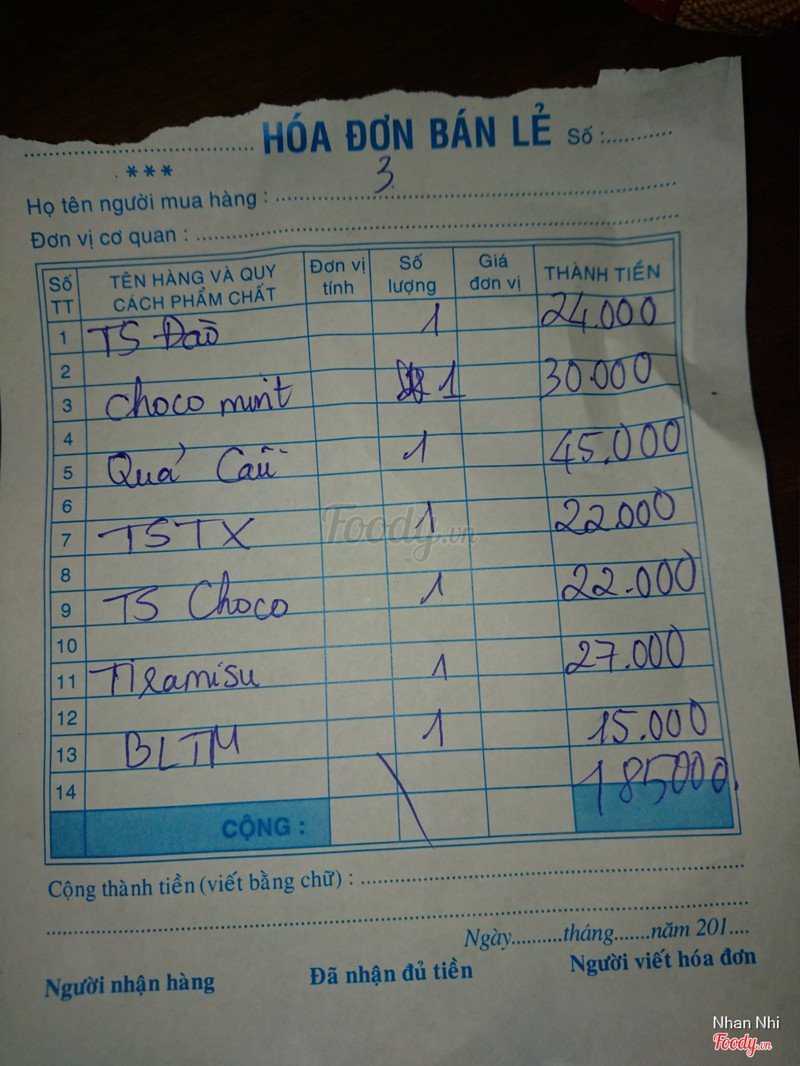 HÓA ĐƠN BÁN LẺ Số :..........
***
Họ tên người mua hàng : 3
Đơn vị cơ quan :
Số TT TÊN HÀNG VÀ QUY CÁCH PHẨM CHẤT Đơn vị tính Số lượng Giá đơn vị THÀNH TIỀN
1 TS Đào 1 24.000
2
3 Choco mint 1 30.000
4
5 Quả Cầu 1 45.000
6
7 TSTX 1 22.000
8
9 TS Choco 1 22.000
10
11 Tiramisu 1 27.000
12
13 BLTM 1 15.000
14 185000.
CỘNG :
Cộng thành tiền (viết bằng chữ) :
Ngày..........tháng.......năm 201....
Người nhận hàng Đã nhận đủ tiền Người viết hóa đơn
Foody.vn
Nhan Nhi
Foody.vn